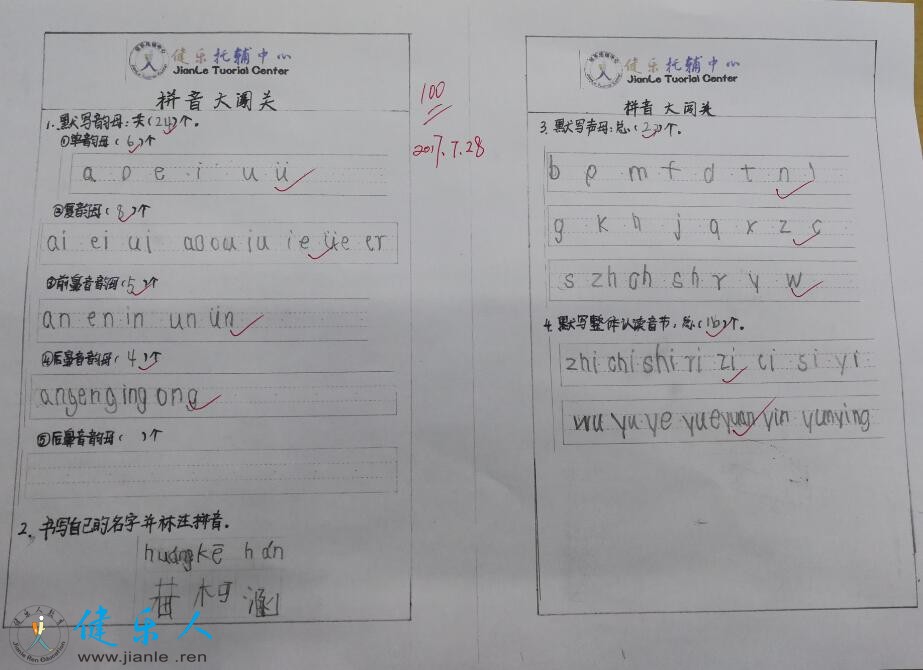 健乐托辅中心
JianLe Tuorial Center
拼音大闯关
1. 默写韵母:共(24)个。
①单韵母(6)个
a o e i u ü
②复韵母(8)个
ai ei ui ao ou iu ie üe er
③前鼻音韵母(5)个
an en in un ün
④后鼻音韵母(4)个
ang eng ing ong
⑤后鼻音韵母( )个
2. 书写自己的名字并标注拼音。
huáng kē hán
黄柯涵
100
2017.7.28
健乐托辅中心
JianLe Tuorial Center
拼音大闯关
3. 默写声母:总(23)个。
b p m f d t n l
g k h j q x z c
s zh ch sh r y w
4. 默写整体认读音节,总(16)个。
zhi chi shi ri zi ci si yi
wu yu ye yue yuan yin yun ying
健乐人
www.jianle.ren